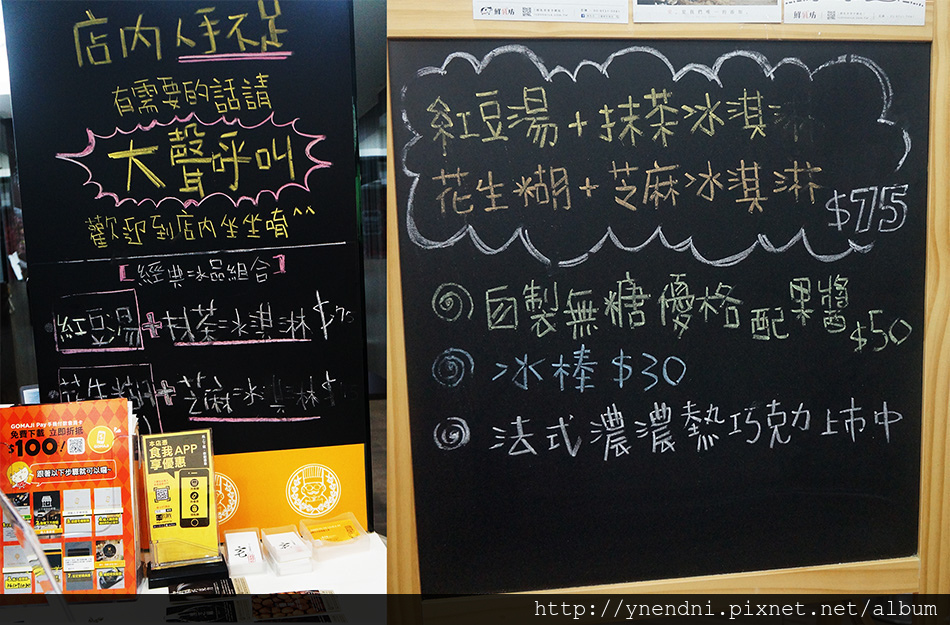 店內人手不足
有需要的話請
大聲呼叫
歡迎到店內坐坐唷^^
【經典冰品組合】
紅豆湯+抹茶冰淇淋$70
花生糊+芝麻冰淇淋$
GOMAJI Pay
免費下載 立即折抵
$100!
跟著以下步驟就可以囉~
本店憑
食我APP
享優惠
宅
宅
紅豆湯+抹茶冰淇淋
花生糊+芝麻冰淇淋
$75
自製無糖優格配果醬$50
冰棒$30
法式濃濃熱巧克力上市中
http://ynendni.pixnet.net/album